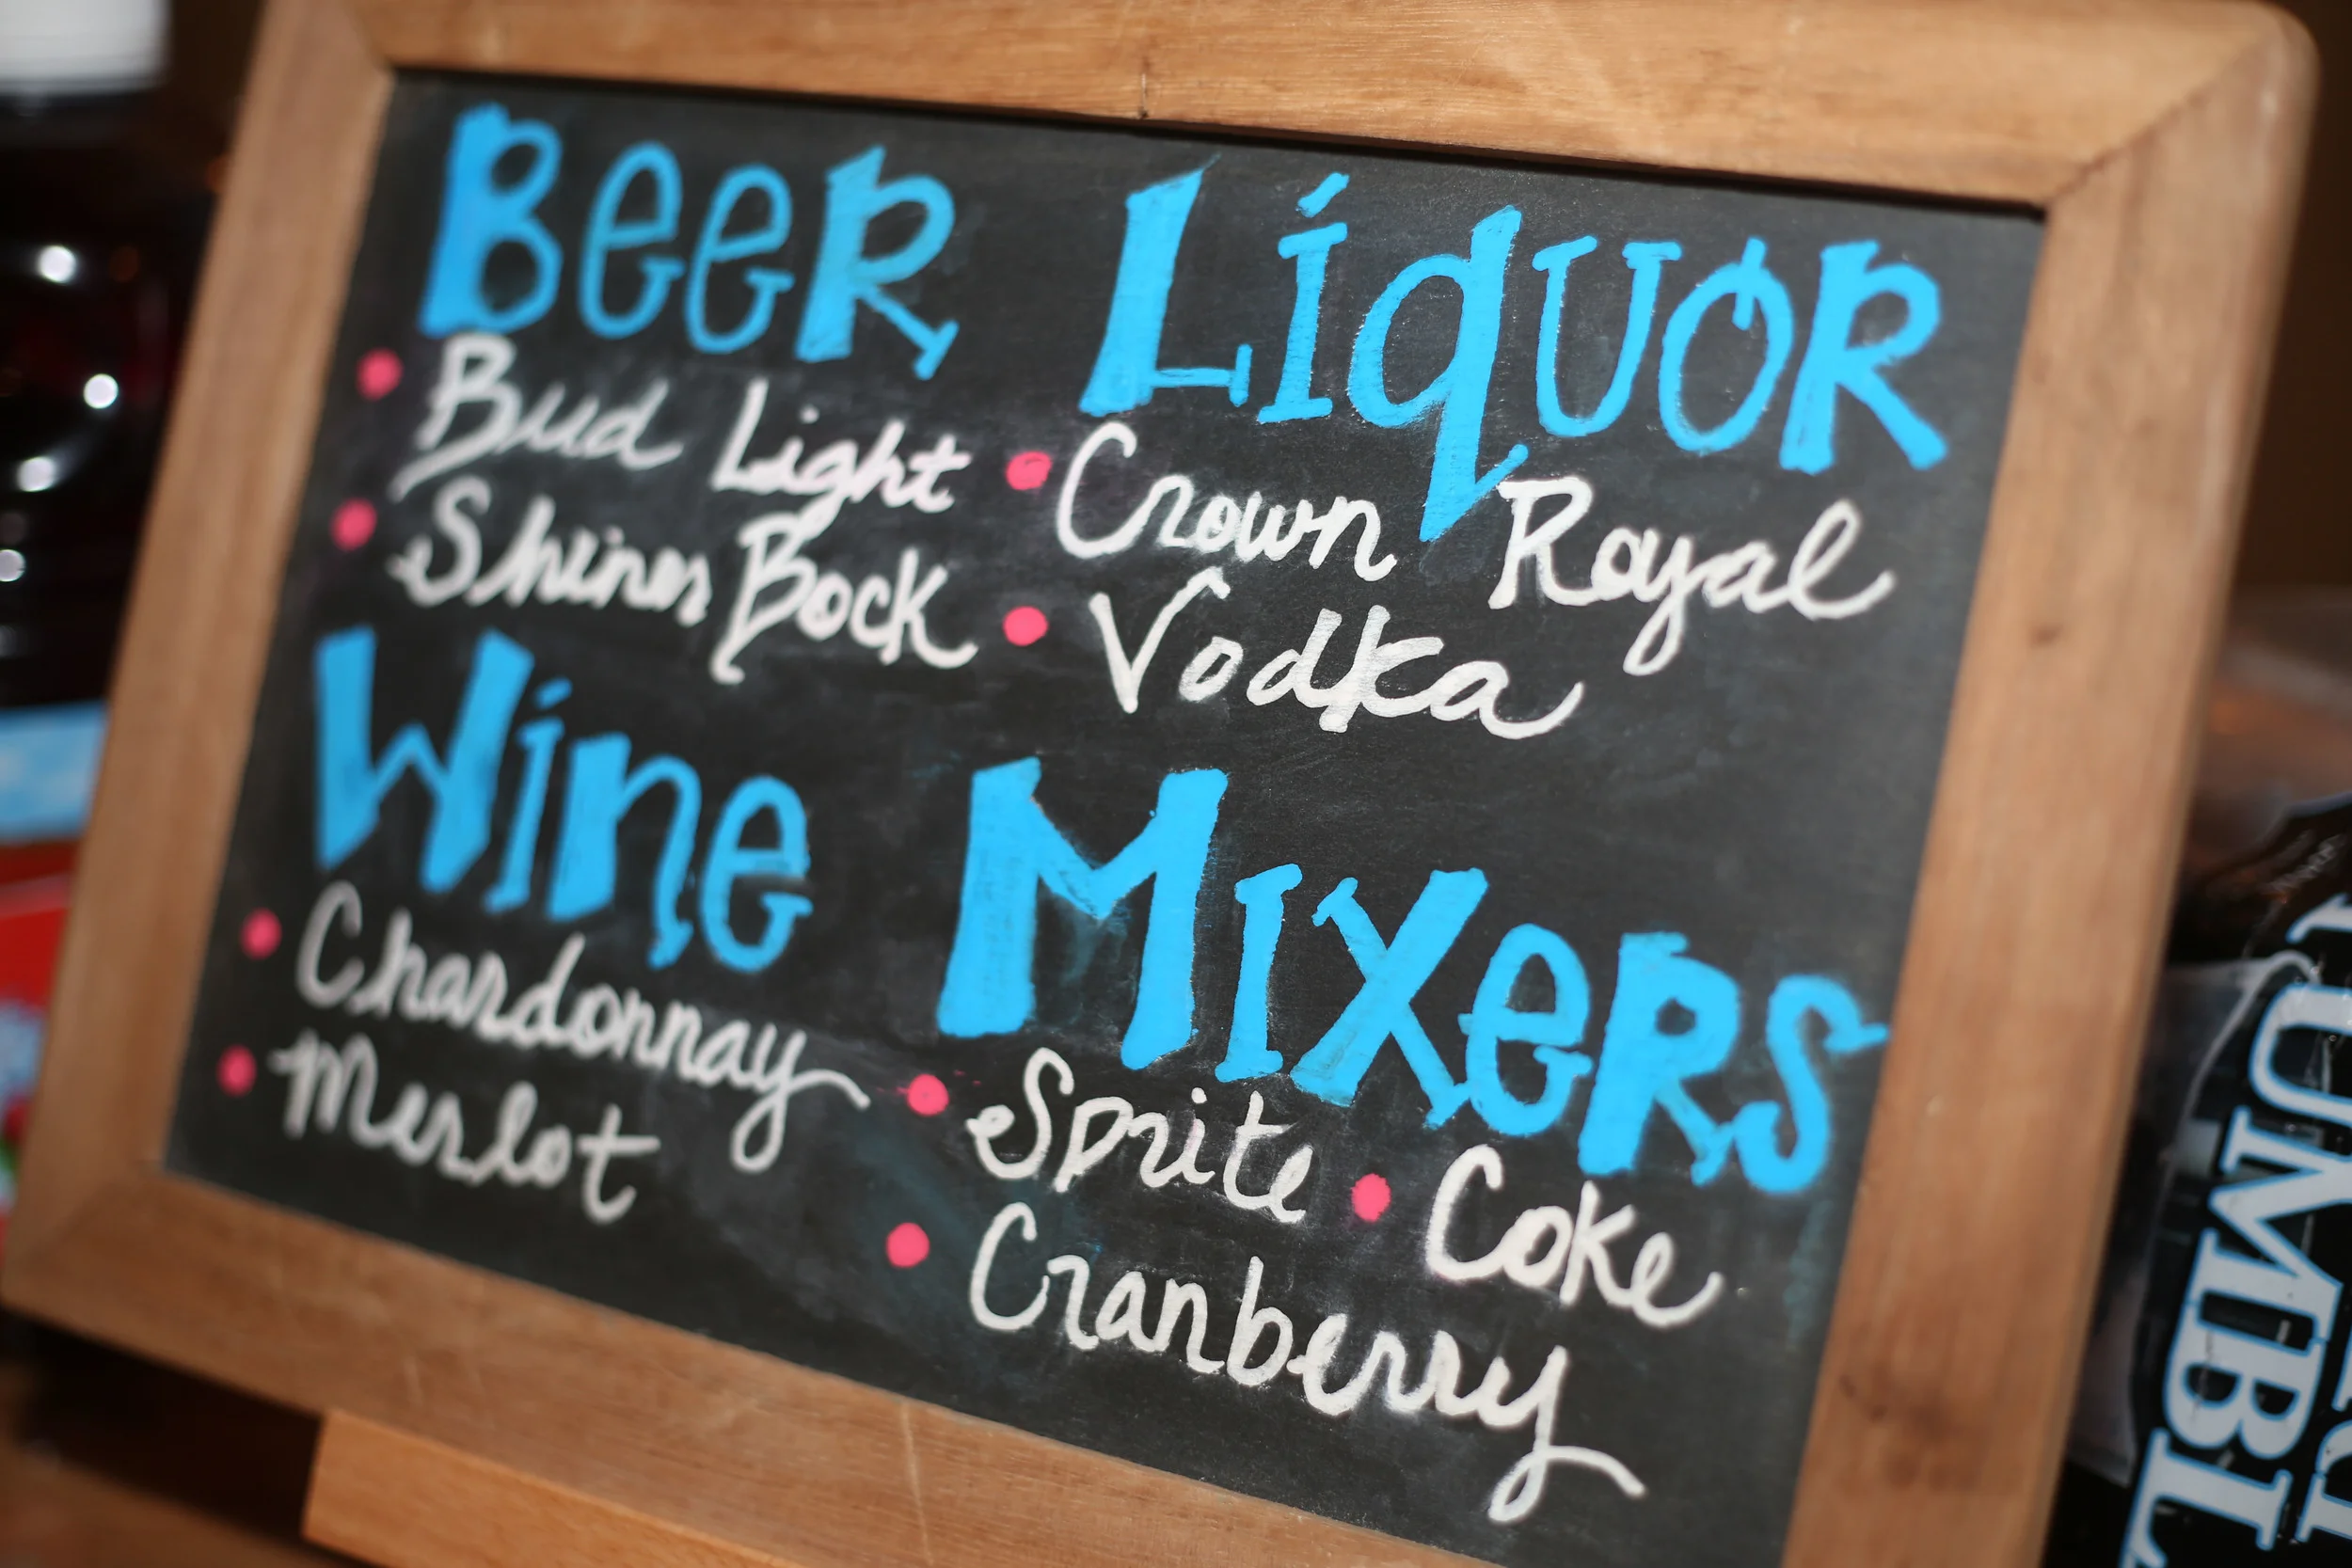 Beer
• Bud Light
• Shiner Bock
Liquor
• Crown Royal
• Vodka
Wine
• Chardonnay
• Merlot
Mixers
• Sprite • Coke
• Cranberry